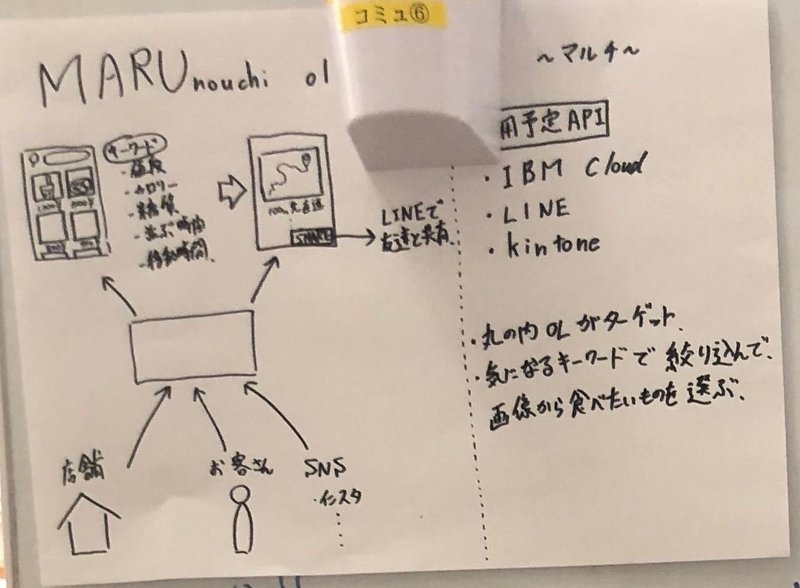 コミュ⑥
MARUnouchi ol
〜マルチ〜
キーワード
・値段
・カロリー
・糖質
・並ぶ時間
・移動時間
SHARE
LINEで
友達と共有
用予定API
・IBM Cloud
・LINE
・kintone
・丸の内OLがターゲット.
・気になるキーワードで絞り込んで、
画像から食べたいものを選ぶ、
店舗
お客さん
SNS
・インスタ